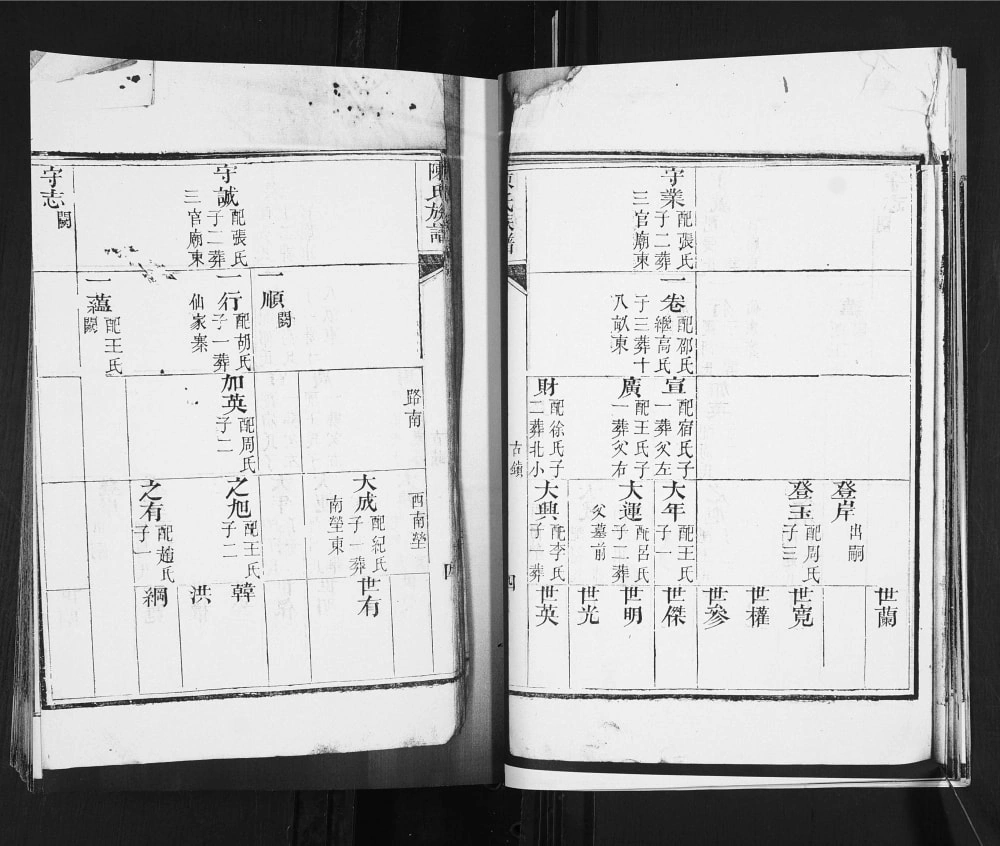 守業 配張氏
子二葬
三官廟東
一卷 配邴氏
繼高氏
子三葬十
八畝東
宣 配宿氏子
一葬父左
廣 配王氏子
一葬父右
財 配徐氏子
二葬北小
登岸 出嗣
登玉 配周氏
子三
大年 配王氏
子一
大運 配呂氏
子二葬
父墓前
大興 配李氏
子一葬
世蘭
世寬
世權
世參
世傑
世明
世光
世英
古鎮
四
陳氏族譜
四
路南
西南塋
守誠 配張氏
子二葬
三官廟東
守志 闕
一順 闕
一行 配胡氏
子一葬
仙家寨
一蘊 配王氏
闕
加英 配周氏
子二
大成 配紀氏
子一葬
南塋東
之旭 配王氏
子二
之有 配趙氏
子一
世有
韓
洪
綱